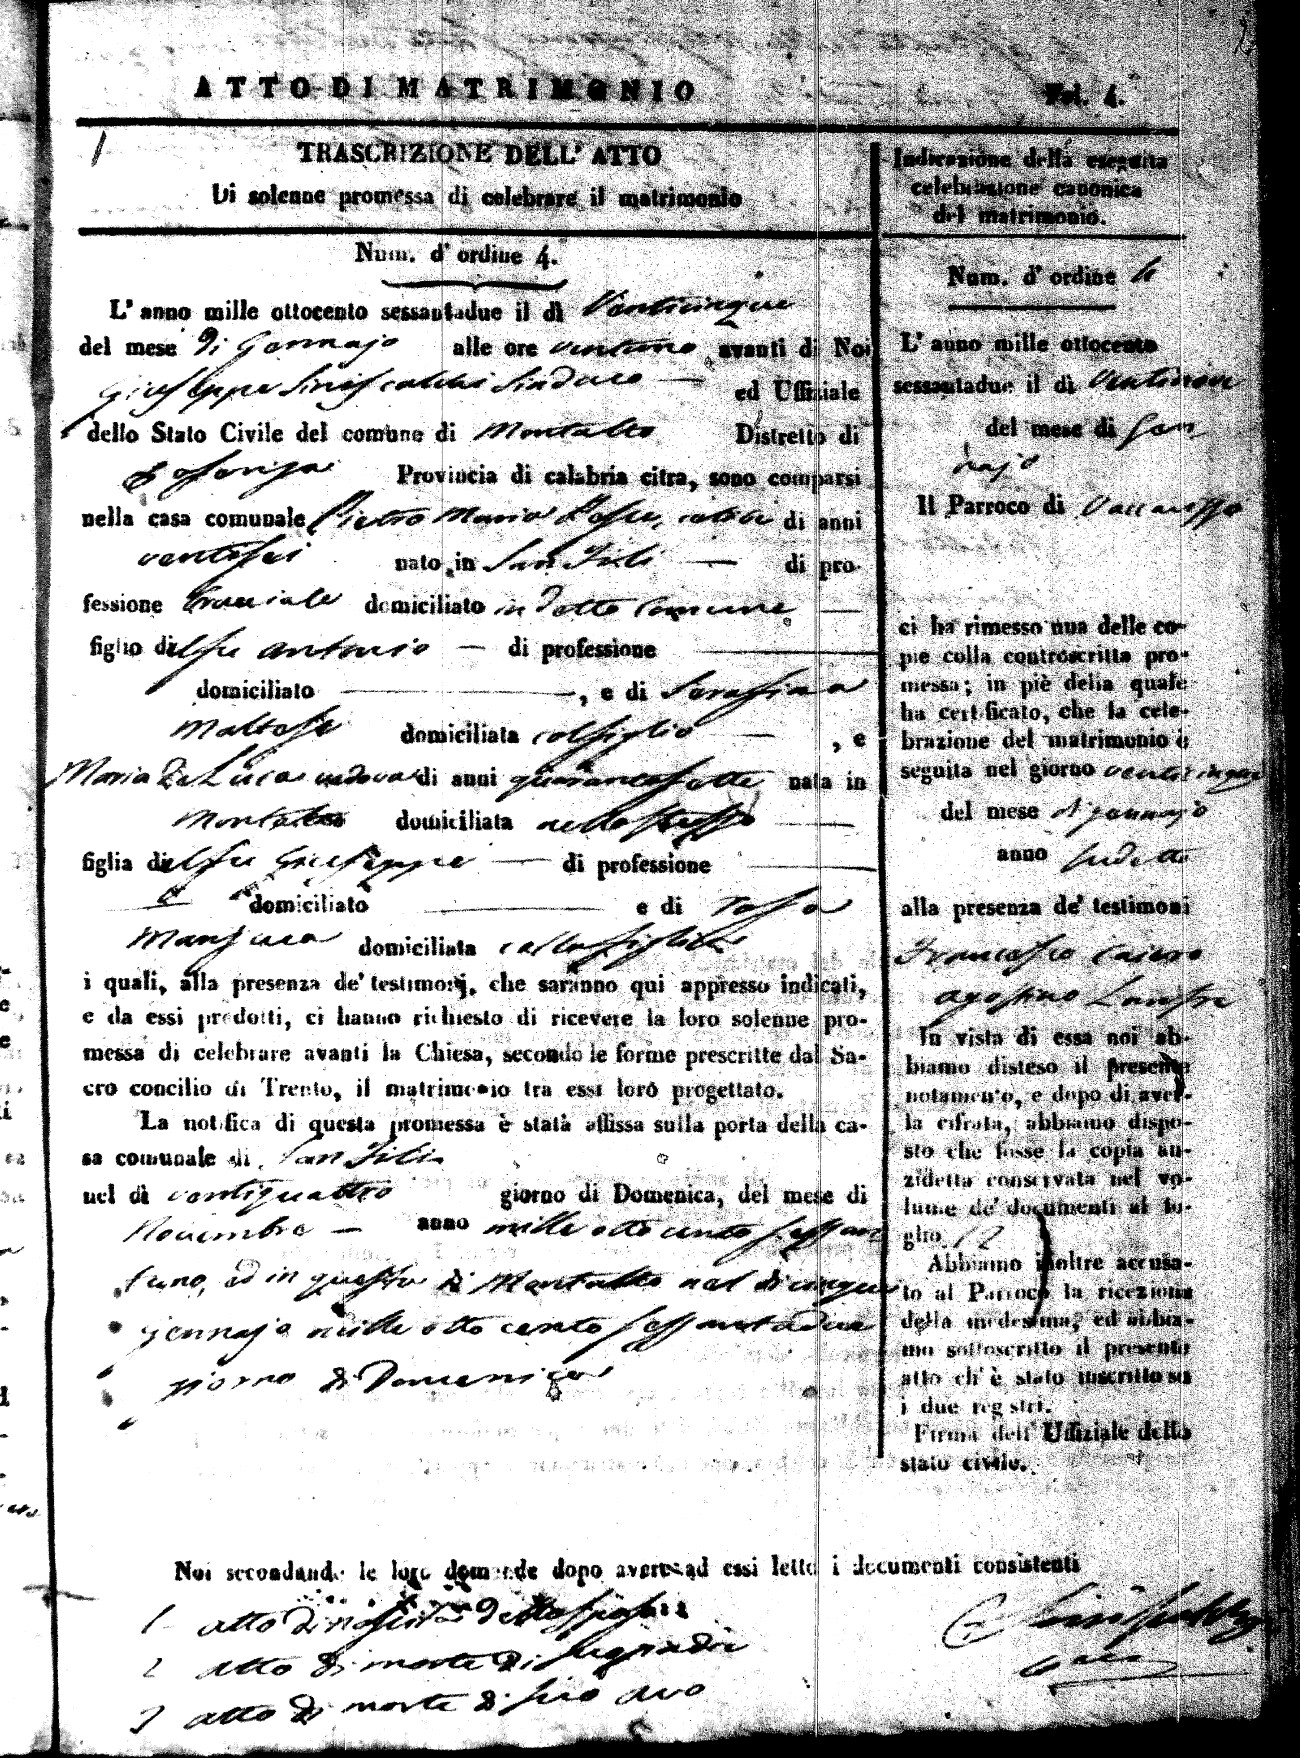 ATTO DI MATRIMONIO
Fol. 4.
1
TRASCRIZIONE DELL' ATTO
Di solenne promessa di celebrare il matrimonio
Num. d' ordine 4.
L' anno mille ottocento sessantadue il dì Venticinque
del mese di Gennajo alle ore ventuno avanti di Noi
Giuseppe Siniscalchi Sindaco ed Uffiziale
dello Stato Civile del comune di Montalto Distretto di
Cosenza Provincia di calabria citra, sono comparsi
nella casa comunale Pietro Maria celibe di anni
ventisei nato in San Fili di pro-
fessione Bracciale domiciliato in detto Comune
figlio del fu Antonio di professione
domiciliato , e di Serafina
Maltese domiciliata col figlio , e
Maria De Luca vedova di anni quarantasette nata in
Montalto domiciliata nello stesso
figlia del fu Giuseppe di professione
domiciliato e di Rosa
domiciliata colla figlia
i quali, alla presenza de' testimonj, che saranno qui appresso indicati,
e da essi prodotti, ci hanno richiesto di ricevere la loro solenne pro-
messa di celebrare avanti la Chiesa, secondo le forme prescritte dal Sa-
cro concilio di Trento, il matrimonio tra essi loro progettato.
La notifica di questa promessa è stata affissa sulla porta della ca-
sa comunale di San Fili
nel dì ventiquattro giorno di Domenica, del mese di
Novembre anno mille otto cento sessan
tuno, ed in questa di Montalto nel dì cinque
gennajo mille otto cento sessantadue
giorno di Domenica
Indicazione della eseguita
celebrazione canonica
del matrimonio.
Num. d' ordine 4
L' anno mille ottocento
sessantadue il dì Ventinove
del mese di Gen
najo
Il Parroco di Vaccarizzo
ci ha rimesso una delle co-
pie colla controscritta pro-
messa; in piè della quale
ha certificato, che la cele-
brazione del matrimonio è
seguita nel giorno venticinque
del mese di gennajo
anno sudetto
alla presenza de' testimoni
Francesco
Agostino
In vista di essa noi ab-
biamo disteso il presente
notamento, e dopo di aver-
la cifrata, abbiamo dispo-
sto che fosse la copia an-
zidetta conservata nel vo-
lume de' documenti al fo-
glio 12
Abbiamo inoltre accusa-
to al Parroco la ricezione
della medesima, ed abbia-
mo sottoscritto il presente
atto ch' è stato inscritto su
i due registri.
Firma dell' Uffiziale dello
stato civile.
Noi secondando le loro domande dopo avere ad essi letto i documenti consistenti
1 atto di nascita dello sposo
2 atto di morte di suo padre
3 atto di morte di suo avo
Siniscalchi